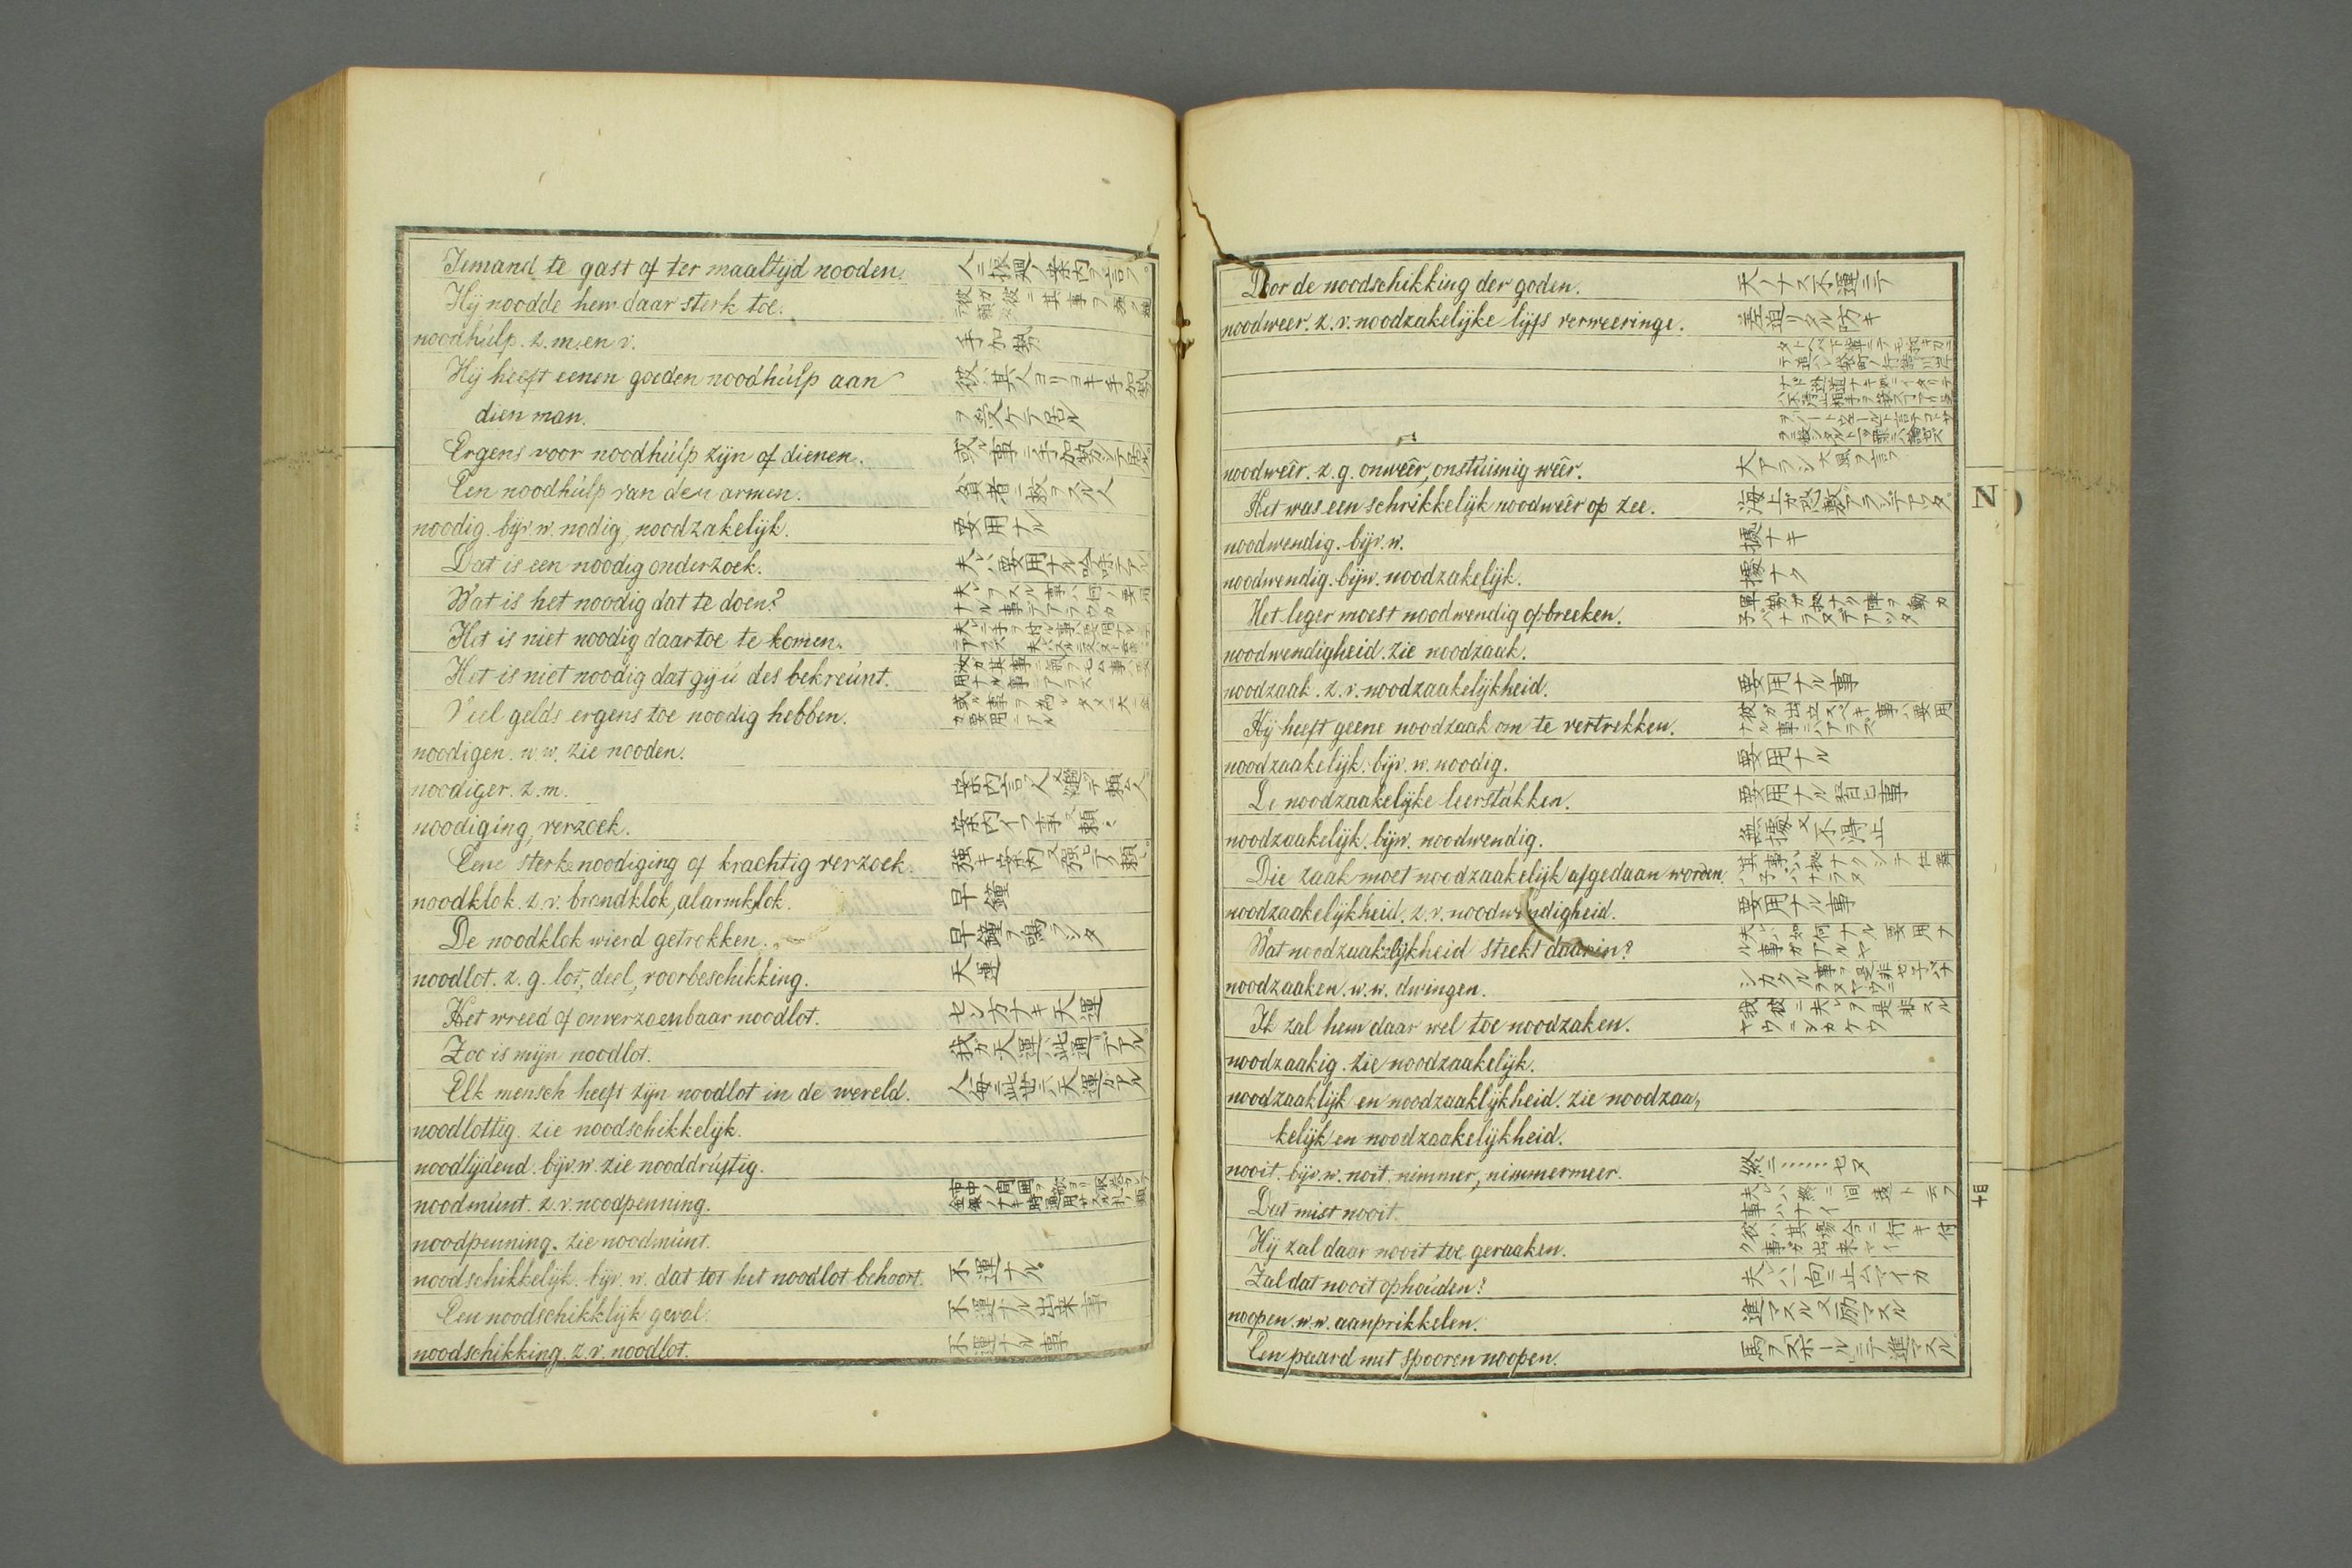 Iemand te gast of ter maaltijd nooden.
人ニ振廻ノ案内ヲ言フ
Hij noodde hem daar sterk toe.
noodhúlp. z. m. en v.
手加勢
Hij heeft eenen goeden noodhúlp aan
彼ハ其人ヨリヨキ手加勢
dien man.
ヲ受ケテ居ル
Ergens voor noodhúlp zijn of dienen.
或ル事ニ手加勢シテ居ル
Een noodhúlp van den armen.
貧者ニ救ヲスル人
noodig. bijv. w. nodig, noodzakelijk.
要用ナル
Dat is een noodig onderzoek.
夫レハ要用ナル吟味デアル
Wat is het noodig dat te doen?
夫レヲスル事ハ何ノ要用
ナル事デアラウカ
Het is niet noodig daartoe te komen.
Het is niet noodig dat gij ú des bekreúnt.
Veel gelds ergens toe noodig hebben.
noodigen. w. w. zie nooden.
noodiger. z. m.
noodiging, verzoek.
Eene sterke noodiging of krachtig verzoek.
noodklok. z. v. brandklok, alarmklok.
早鐘
De noodklok wierd getrokken.
早鐘ヲ鳴ラシタ
noodlot. z. g. lot, deel, voorbeschikking.
天運
Het wreed of onverzoenbaar noodlot.
センカタナキ天運
Zoo is mijn noodlot.
我ガ天運ハ此通デアル
Elk mensch heeft zijn noodlot in de wereld.
人毎ニ此世ニハ天運ガアル
noodlottig. zie noodschikkelijk.
noodlijdend. bijv. w. zie nooddrúftig.
noodmúnt. z. v. noodpenning.
noodpenning. zie noodmúnt.
noodschikkelijk. bijv. w. dat tot het noodlot behoort.
不運ナル
Een noodschikklijk geval.
不運ナル出来事
noodschikking. z. v. noodlot.
不運ナル事
Door de noodschikking der goden.
天ノナス不運ニテ
noodweer. z. v. noodzakelijke lijfs verweeringe.
差迫リタル防キ
noodweêr. z. g. onweêr, onstúimig wêer.
大アラシ大風ヲ言フ
Het was een schrikkelijk noodweêr op zee.
noodwendig. bijv. w.
據ナキ
noodwendig. bijw. noodzakelijk.
據ナク
Het leger moest noodwendig opbreeken.
軍勢ガ據ナク陣ヲ動カ
子バナラヌデアツタ
noodwendigheid. zie noodzaak.
noodzaak. z. v. noodzaakelijkheid.
要用ナル事
Hij heeft geene noodzaak om te vertrekken.
彼ガ出立スベキ事ハ要用
ナル事ニハアラズ
noodzaakelijk. bijv. w. noodig.
要用ナル
De noodzaakelijke leerstúkken.
要用ナル習ヒ事
noodzaakelijk. bijw. noodwendig.
無據又不得止
Die zaak moet noodzaakelijk afgedaan worden.
noodzaakelijkheid. z. v. noodwendigheid.
要用ナル事
Wat noodzaakelijkheid steekt daarin?
夫レハ如何ナル要用ナ
ル事ガアルヤ
noodzaaken. w. w. dwingen.
Ik zal hem daar wel toe noodzaken.
我彼ニ夫レヲ是非スル
ヤウニシカケウ
noodzaakig. zie noodzaakelijk.
noodzaaklijk en noodzaaklijkheid. zie noodzaa-
kelijk en noodzaakelijkheid.
nooit. bijv. w. noit. nimmer, nimmermeer.
終ニ……セヌ
Dat mist nooit.
夫レハ終ニ間違ト云フ
事ハナイ
Hij zal daar nooit toe geraaken.
彼ハ其場合ニ行キ付
ク事ガ出来マイ
Zal dat nooit ophoúden?
夫レハ一向ニ止ムマイカ
noopen. w. w. aanprikkelen.
進マスル又励マスル
Een paard met spooren noopen.
馬ヲスポールニテ進マスル
N